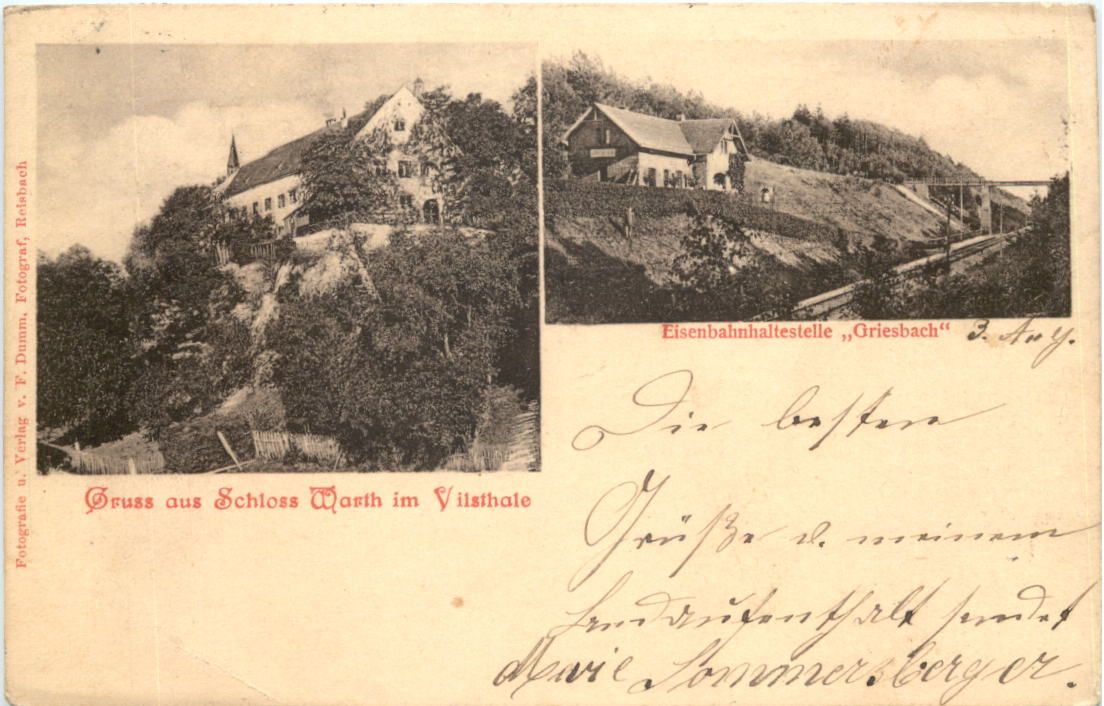 Fotografie u. Verlag v. F. Dumm, Fotograf, Reisbach
Gruss aus Schloss Warth im Vilsthale
Eisenbahnhaltestelle „Griesbach“
3. Aug.
Die besten
Grüße v. meinem
Landaufenthalt sendet
Marie Sommersberger.